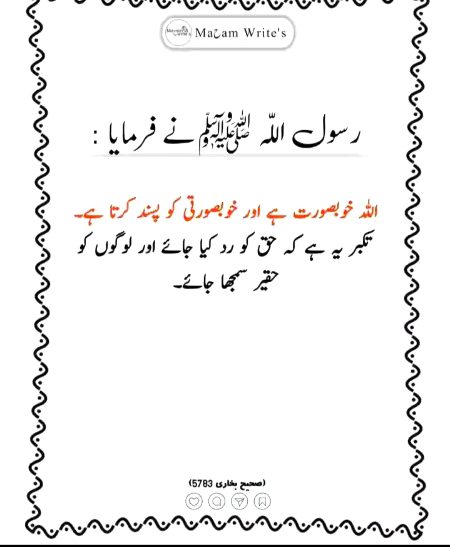 Mazam Write's
رسول اللہ ﷺ نے فرمایا :
اللہ خوبصورت ہے اور خوبصورتی کو پسند کرتا ہے۔
تکبر یہ ہے کہ حق کو رد کیا جائے اور لوگوں کو
حقیر سمجھا جائے۔
(صحیح بخاری 5783)